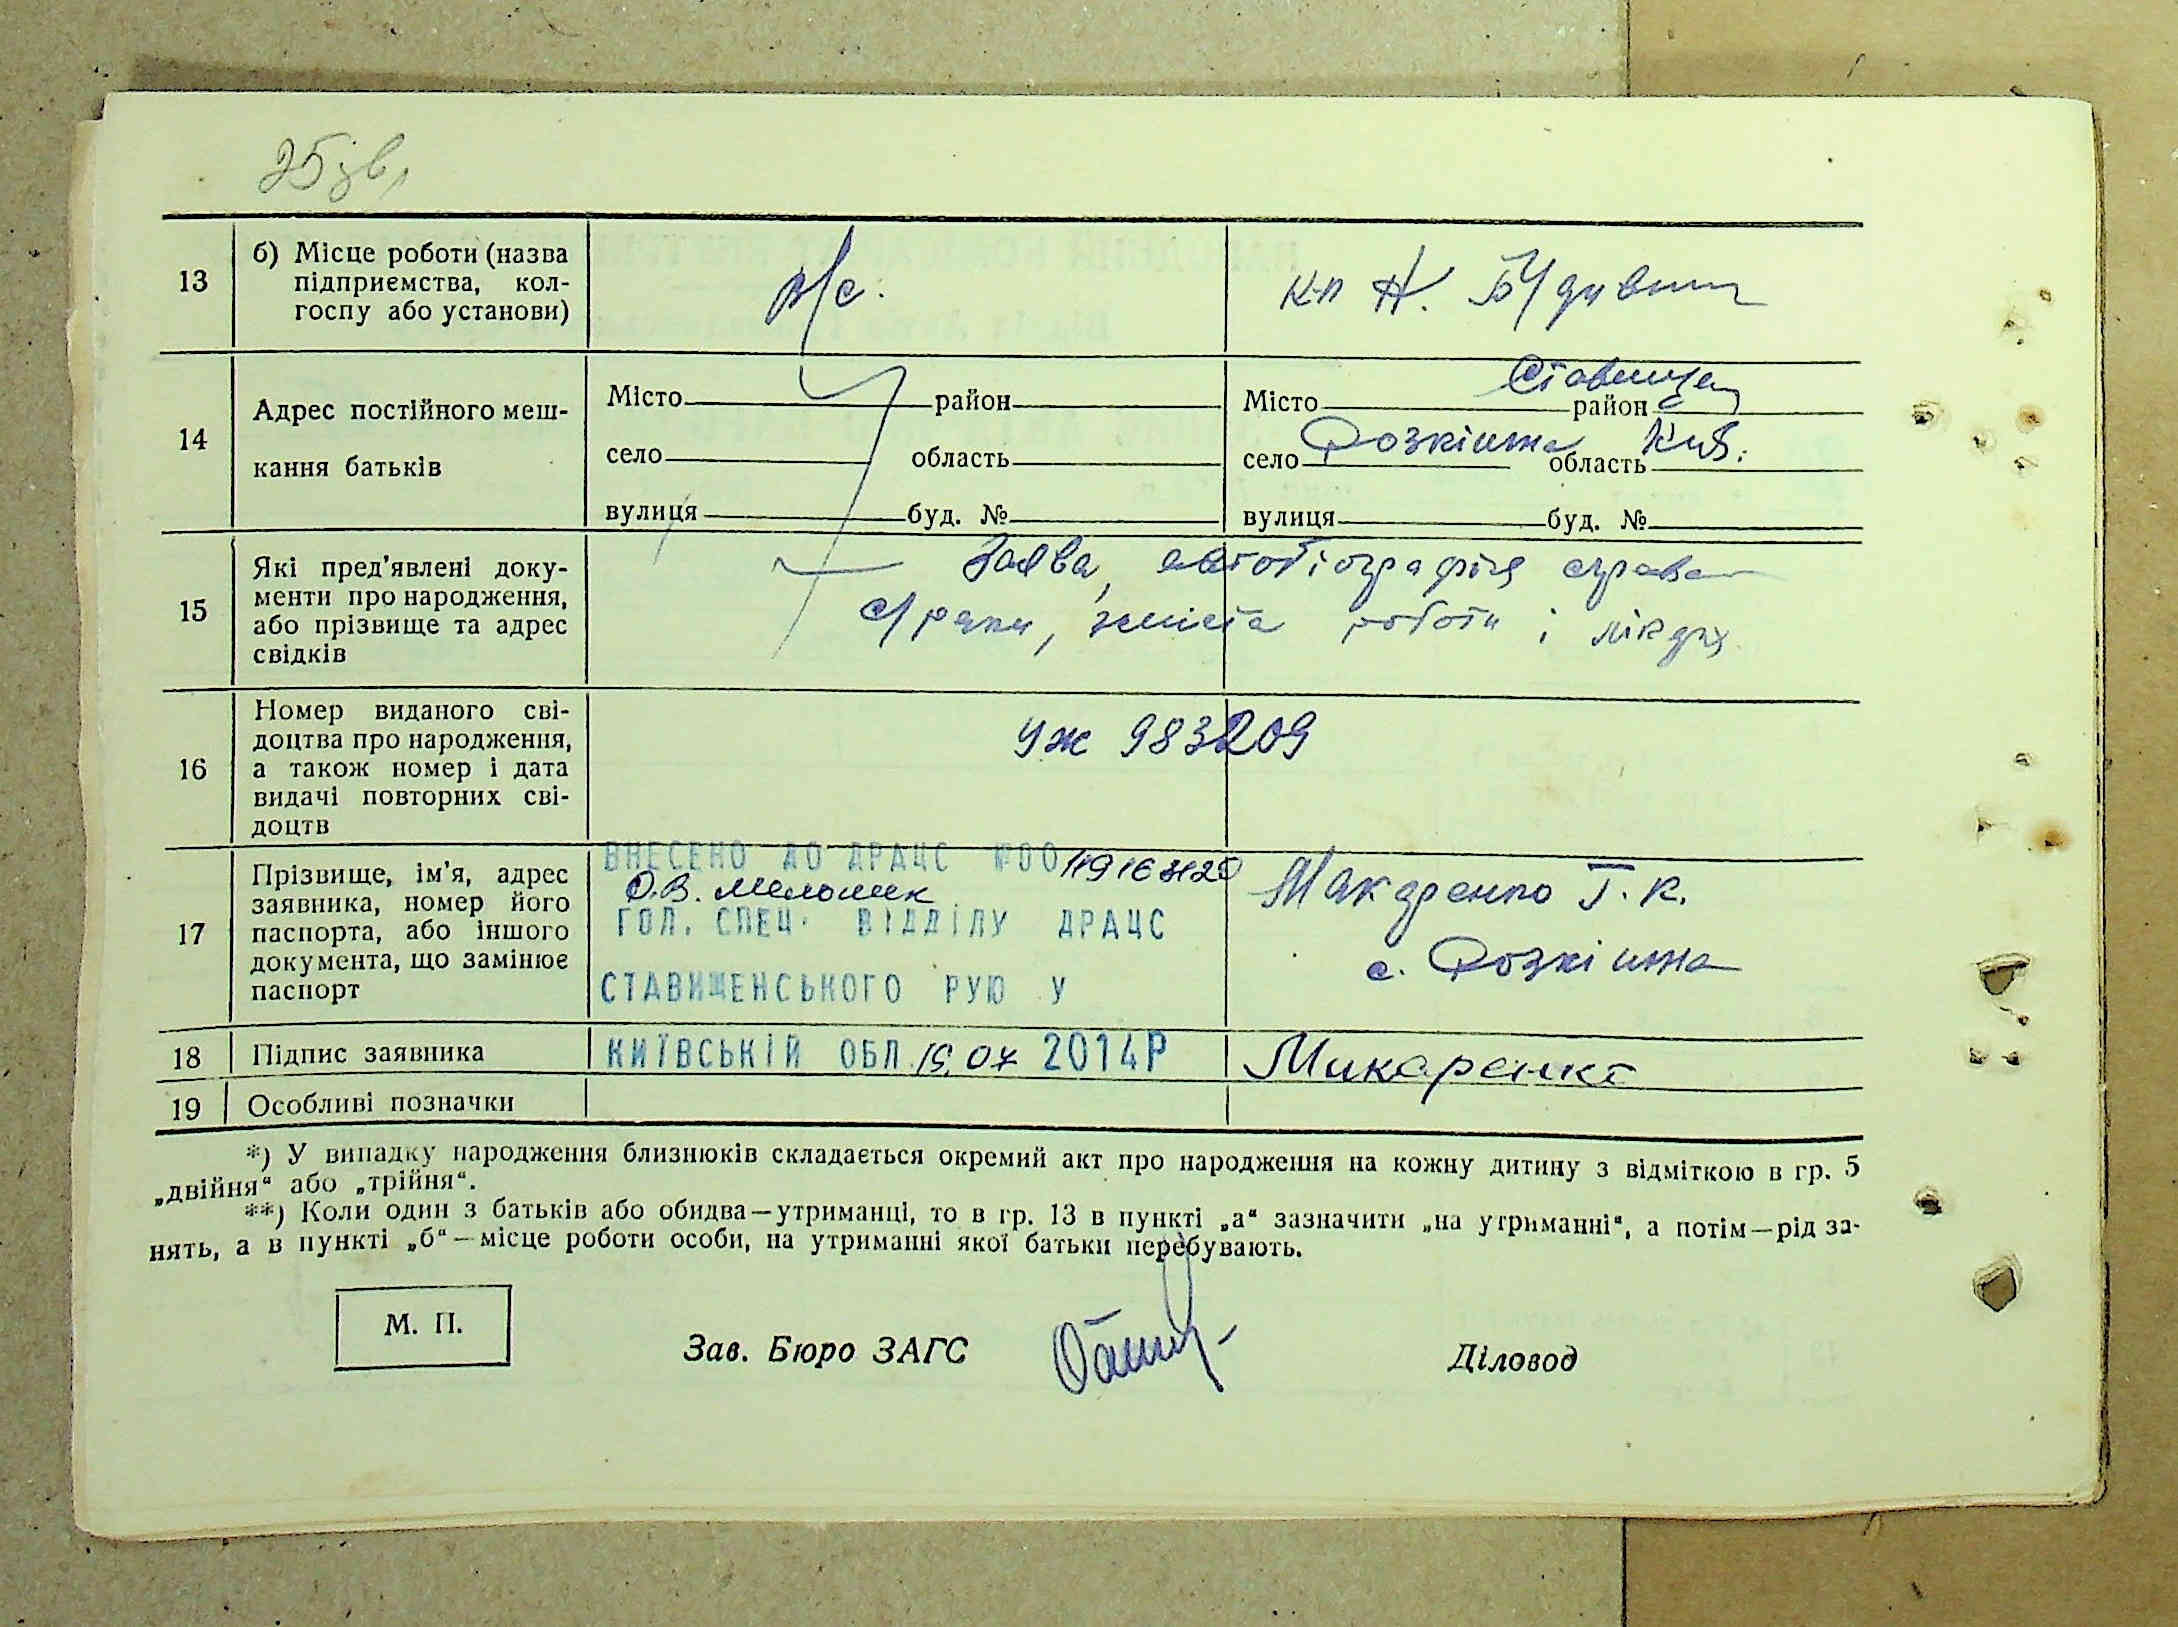 25 зв.
13
б) Місце роботи (назва
підприємства, кол-
госпу або установи)
к-п Н.
14
Адрес постійного меш-
кання батьків
Місто район
село область
вулиця буд. №
Місто район Ставищен
село Розкішна область Київ.
вулиця буд. №
15
Які пред'явлені доку-
менти про народження,
або прізвище та адрес
свідків
Заява, автобіографія справа
с/ради, роботи і лікаря
16
Номер виданого сві-
доцтва про народження,
а також номер і дата
видачі повторних сві-
доцтв
УЖ 983209
17
Прізвище, ім'я, адрес
заявника, номер його
паспорта, або іншого
документа, що замінює
паспорт
ВНЕСЕНО ДО ДРАЦС №00
О.В.
ГОЛ. СПЕЦ. ВІДДІЛУ ДРАЦС
СТАВИЩЕНСЬКОГО РУЮ У
Макаренко Г. К.
с. Розкішна
18
Підпис заявника
КИЇВСЬКІЙ ОБЛ. 15.07 2014Р
Макаренко
19
Особливі позначки
*) У випадку народження близнюків складається окремий акт про народження на кожну дитину з відміткою в гр. 5
„двійня“ або „трійня“.
**) Коли один з батьків або обидва—утриманці, то в гр. 13 в пункті „а“ зазначити „на утриманні“, а потім—рід за-
нять, а в пункті „б“—місце роботи особи, на утриманні якої батьки перебувають.
М. П.
Зав. Бюро ЗАГС
Діловод